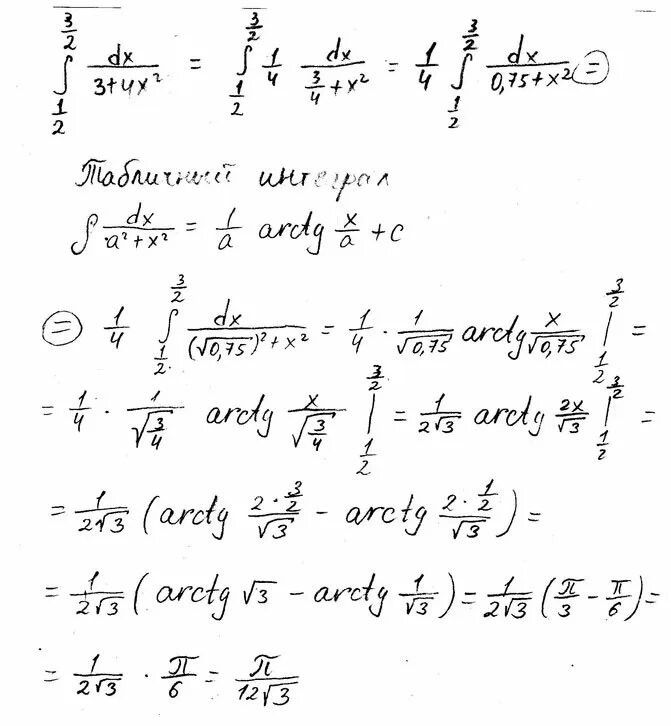 ∫_{1/2}^{3/2} dx/(3+4x²) = ∫_{1/2}^{3/2} 1/4 dx/(3/4+x²) = 1/4 ∫_{1/2}^{3/2} dx/(0,75+x²) ⊜
Табличный интеграл
∫ dx/(a²+x²) = 1/a arctg x/a + c
⊜ 1/4 ∫_{1/2}^{3/2} dx/((√0,75)²+x²) = 1/4 · 1/√0,75 arctg x/√0,75 |_{1/2}^{3/2} =
= 1/4 · 1/√(3/4) arctg x/√(3/4) |_{1/2}^{3/2} = 1/(2√3) arctg 2x/√3 |_{1/2}^{3/2} =
= 1/(2√3) (arctg (2·3/2)/√3 − arctg (2·1/2)/√3) =
= 1/(2√3) (arctg √3 − arctg 1/√3) = 1/(2√3) (π/3 − π/6) =
= 1/(2√3) · π/6 = π/(12√3)